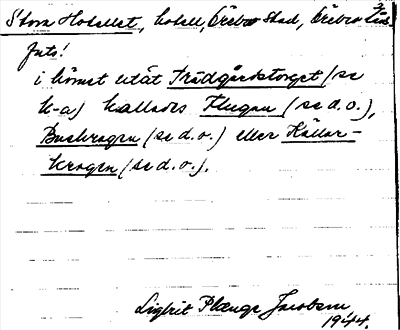 Stora Hotellet, hotell, Örebro Stad, Örebro Län
Juts!
i hörnet utåt Trädgårdstorget (se
k-a) kallades Flugan (se d.o.),
Buskragen (se d.o.) eller Källar-
kragen (se d.o.).
Jacobson
1944.